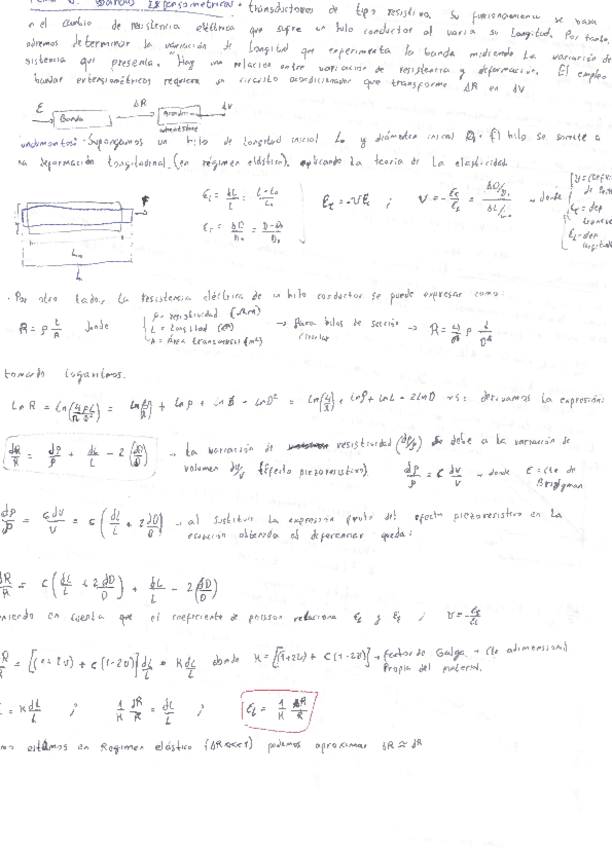 Bandas Extensometricas • transductores de tipo resistivo. Su funcionamiento se basa
n el cambio de resistencia eléctrica que sufre un hilo conductor al varia su longitud. Por tanto,
odremos determinar la variación de longitud que experimenta la banda midiendo la variación de
sistencia que presenta. Hay una relación entre variación de resistencia y deformación. El empleo
bandas extensiométricas requiere un circuito acondicionador que transforme ΔR en dV
E → Banda ΔR → dV
wheatstone
undamentos: Supongamos un hilo de longitud inicial L₀ y diámetro inicial D₀. El hilo se somete a
na deformación longitudinal (en régimen elástico). aplicando la teoria de la elasticidad.
F
L₀
L
ε_L = dL/L = (L-L₀)/L₀
ε_T = dD/D₀ = (D-D₀)/D₀
ε_T = -υE_L ; υ = -ε_T/ε_L = (dD/D₀)/(dL/L₀) → donde
ε_T = def
ε_L = def
longitud
• Por otro lado, la resistencia eléctrica de un hilo conductor se puede expresar como:
R = ρ L/A donde
ρ = resistividad (Ωm)
L = Longitud (m)
A = Área transversal (m²)
→ Para hilos de sección circular → R = 4/π ρ L/D²
tomando logaritmos.
LnR = Ln(4ρL/πD²) = Ln(4/π) + Lnρ + LnL - LnD² = Ln(4/π) + Lnρ + LnL - 2LnD → si derivamos la expresión:
dR/R = dρ/ρ + dL/L - 2(dD/D) → La variación de resistividad (dρ/ρ) se debe a la variación de
volumen dV/V (Efecto piezoresistivo). dρ/ρ = C dV/V → donde C = cte de Bridgman
dρ/ρ = C dV/V = C(dL/L + 2dD/D) → al sustituir la expresión fruto del efecto piezoresistivo en la
ecuación obtenida al diferenciar queda:
dR/R = C(dL/L + 2dD/D) + dL/L - 2(dD/D)
eniendo en cuenta que el coeficiente de poisson relaciona ε_L y ε_T ;
R/R = [(1+2υ) + C(1-2υ)] dL/L = K dL/L donde K = [(1+2υ) + C(1-2υ)] → factor de Galga → cte adimensional
Propia del material.
= K dL/L ; 1/K dR/R = dL/L ; ε_L = 1/K ΔR/R
mo estamos en Regimen elástico (ΔR<<<1) podemos aproximar ΔR ≈ dR